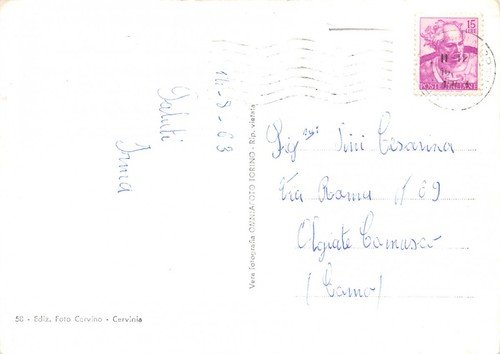 15
LIRE
POSTE ITALIANE
14-8-63
Saluti
Irma
Sig.na Pini Cesarina
Via Roma N 69
Olgiate Comasco
(Como)
Vera Fotografia OMNIAFOTO TORINO - Rip. vietata
58 - Ediz. Foto Cervino - Cervinia